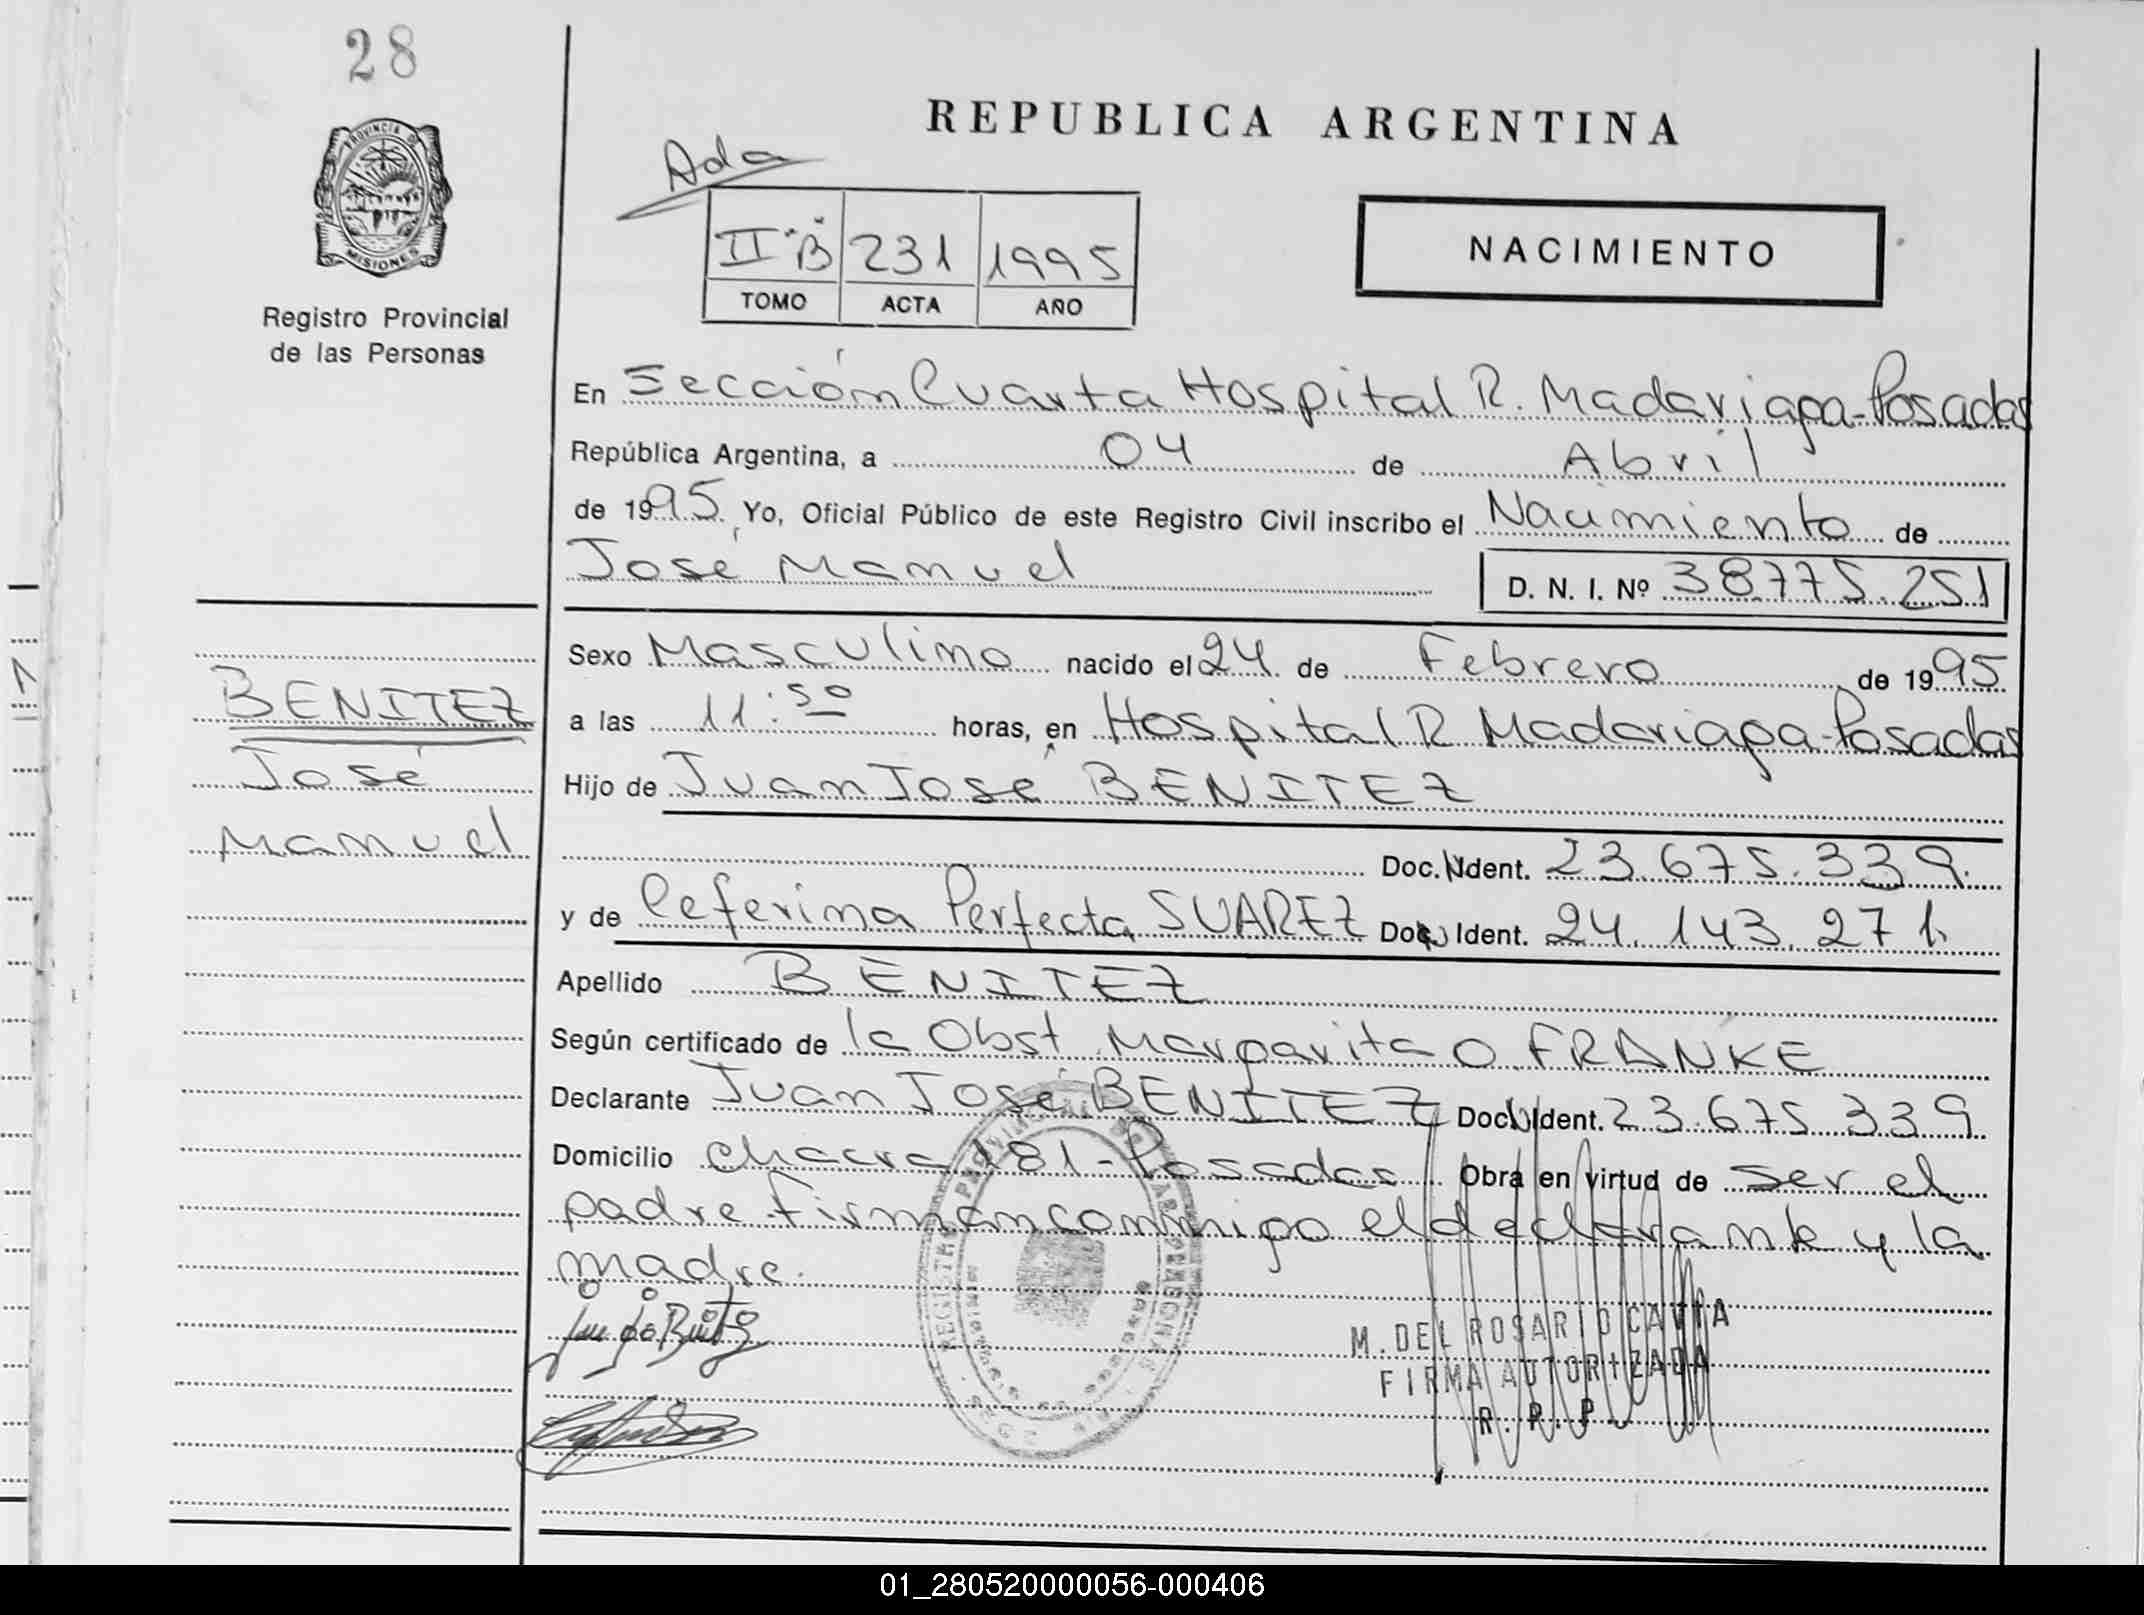 28
PROVINCIA DE
MISIONES
Registro Provincial
de las Personas
REPUBLICA ARGENTINA
Ada
II "B" 231 1995
TOMO ACTA AÑO
NACIMIENTO
En Sección Cuarta Hospital R. Madariaga-Posadas
República Argentina, a 04 de Abril
de 1995. Yo, Oficial Público de este Registro Civil inscribo el Nacimiento de
José Manuel D. N. I. Nº 38.775.251
Sexo Masculino nacido el 24 de Febrero de 1995
a las 11:50 horas, en Hospital R Madariaga-Posadas
Hijo de Juan José BENITEZ
Doc. N Ident. 23.675.339.
y de Ceferina Perfecta SUAREZ Doc. N Ident. 24.143.271.
Apellido BENITEZ
Según certificado de la Obst. Margarita O. FRANKE
Declarante Juan José BENITEZ Doc. N Ident. 23.675.339
Domicilio chacra 181-Posadas Obra en virtud de ser el
padre. firman conmigo el declarante y la
madre.
M. DEL ROSARIO CAVIA
FIRMA AUTORIZADA
R. P. P.
BENITEZ
José
Manuel
01_280520000056-000406